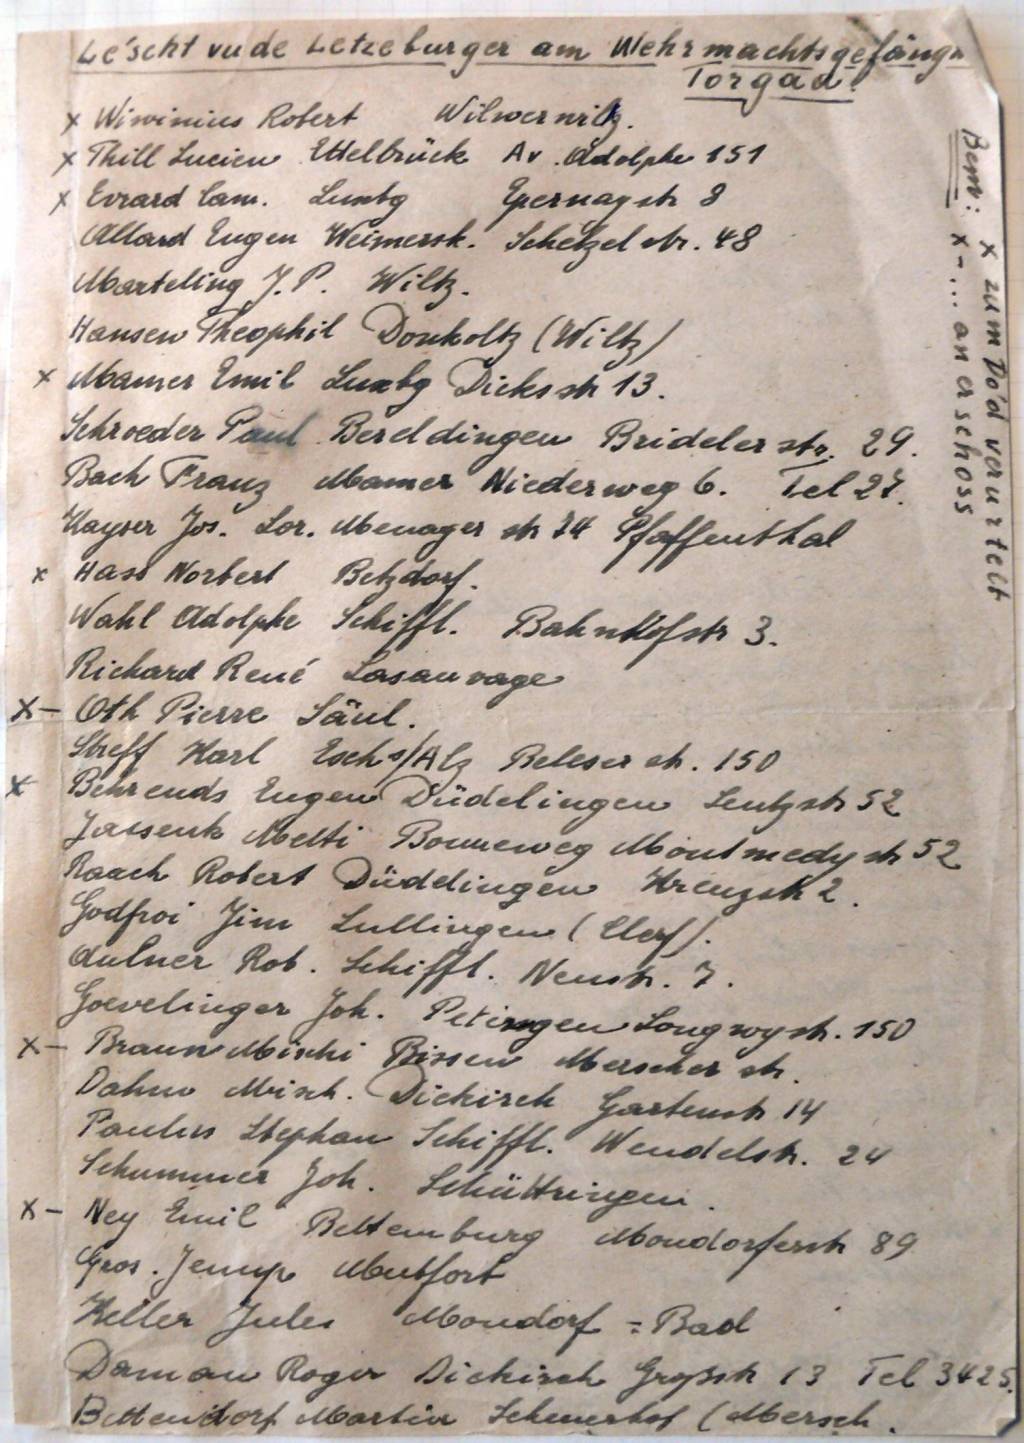 Lëscht vu de Letzeburger am Wehrmachtsgefängn
Torgau.
x Wiwinius Robert Wilwerwiltz.
x Thill Lucien Ettelbrück Av. Adolphe 151
x Evrard Cam. Luxbg Epernaystr 8
Allard Eugen Weimersk. Schetzelstr. 48
Marteling J.P. Wiltz.
Hansen Theophil Donkoltz (Wiltz)
x Mamer Emil Luxbg Dicksstr 13.
Schroeder Paul Bereldingen Bridelerstr. 29.
Bach Franz Mamer Niederweg 6. Tel 27.
Kayser Jos. Lor. Menager str 24 Pfaffenthal
x Hass Norbert Betzdorf.
Wahl Adolphe Schiffl. Bahnhofstr 3.
Richard René Lasauvage
x- Oth Pierre Säul.
Streff Karl Esch s/Alz Beleser str. 150
x Behrends Eugen Düdelingen Lentzstr 52
Metti Bouneweg Montmedystr 52
Raach Robert Düddlingen Kreuzstr 2.
Godfroi Jim Lullingen (Clerf).
Aulner Rob. Schiffl. Neustr. 7.
Goevelinger Joh. Petingen Longwystr. 150
x- Braun Mischi Bissen Merscher str.
Dahm Misch. Diekirch Gartenstr 14
Paulus Stephan Schiffl. Wendelstr. 24
Schummer Joh. Schüttringen.
x- Ney Emil Bettemburg Mondorferstr 89
Gros. Jemp Mutfort
Keller Jules Mondorf = Bad
Daman Roger Diekirch Großstr 13 Tel 3425.
Bettendorf Martin Scheuerhof (Mersch.
Bem: x zum Do'd veru<!-- -->rtelt
x-... an erschoss